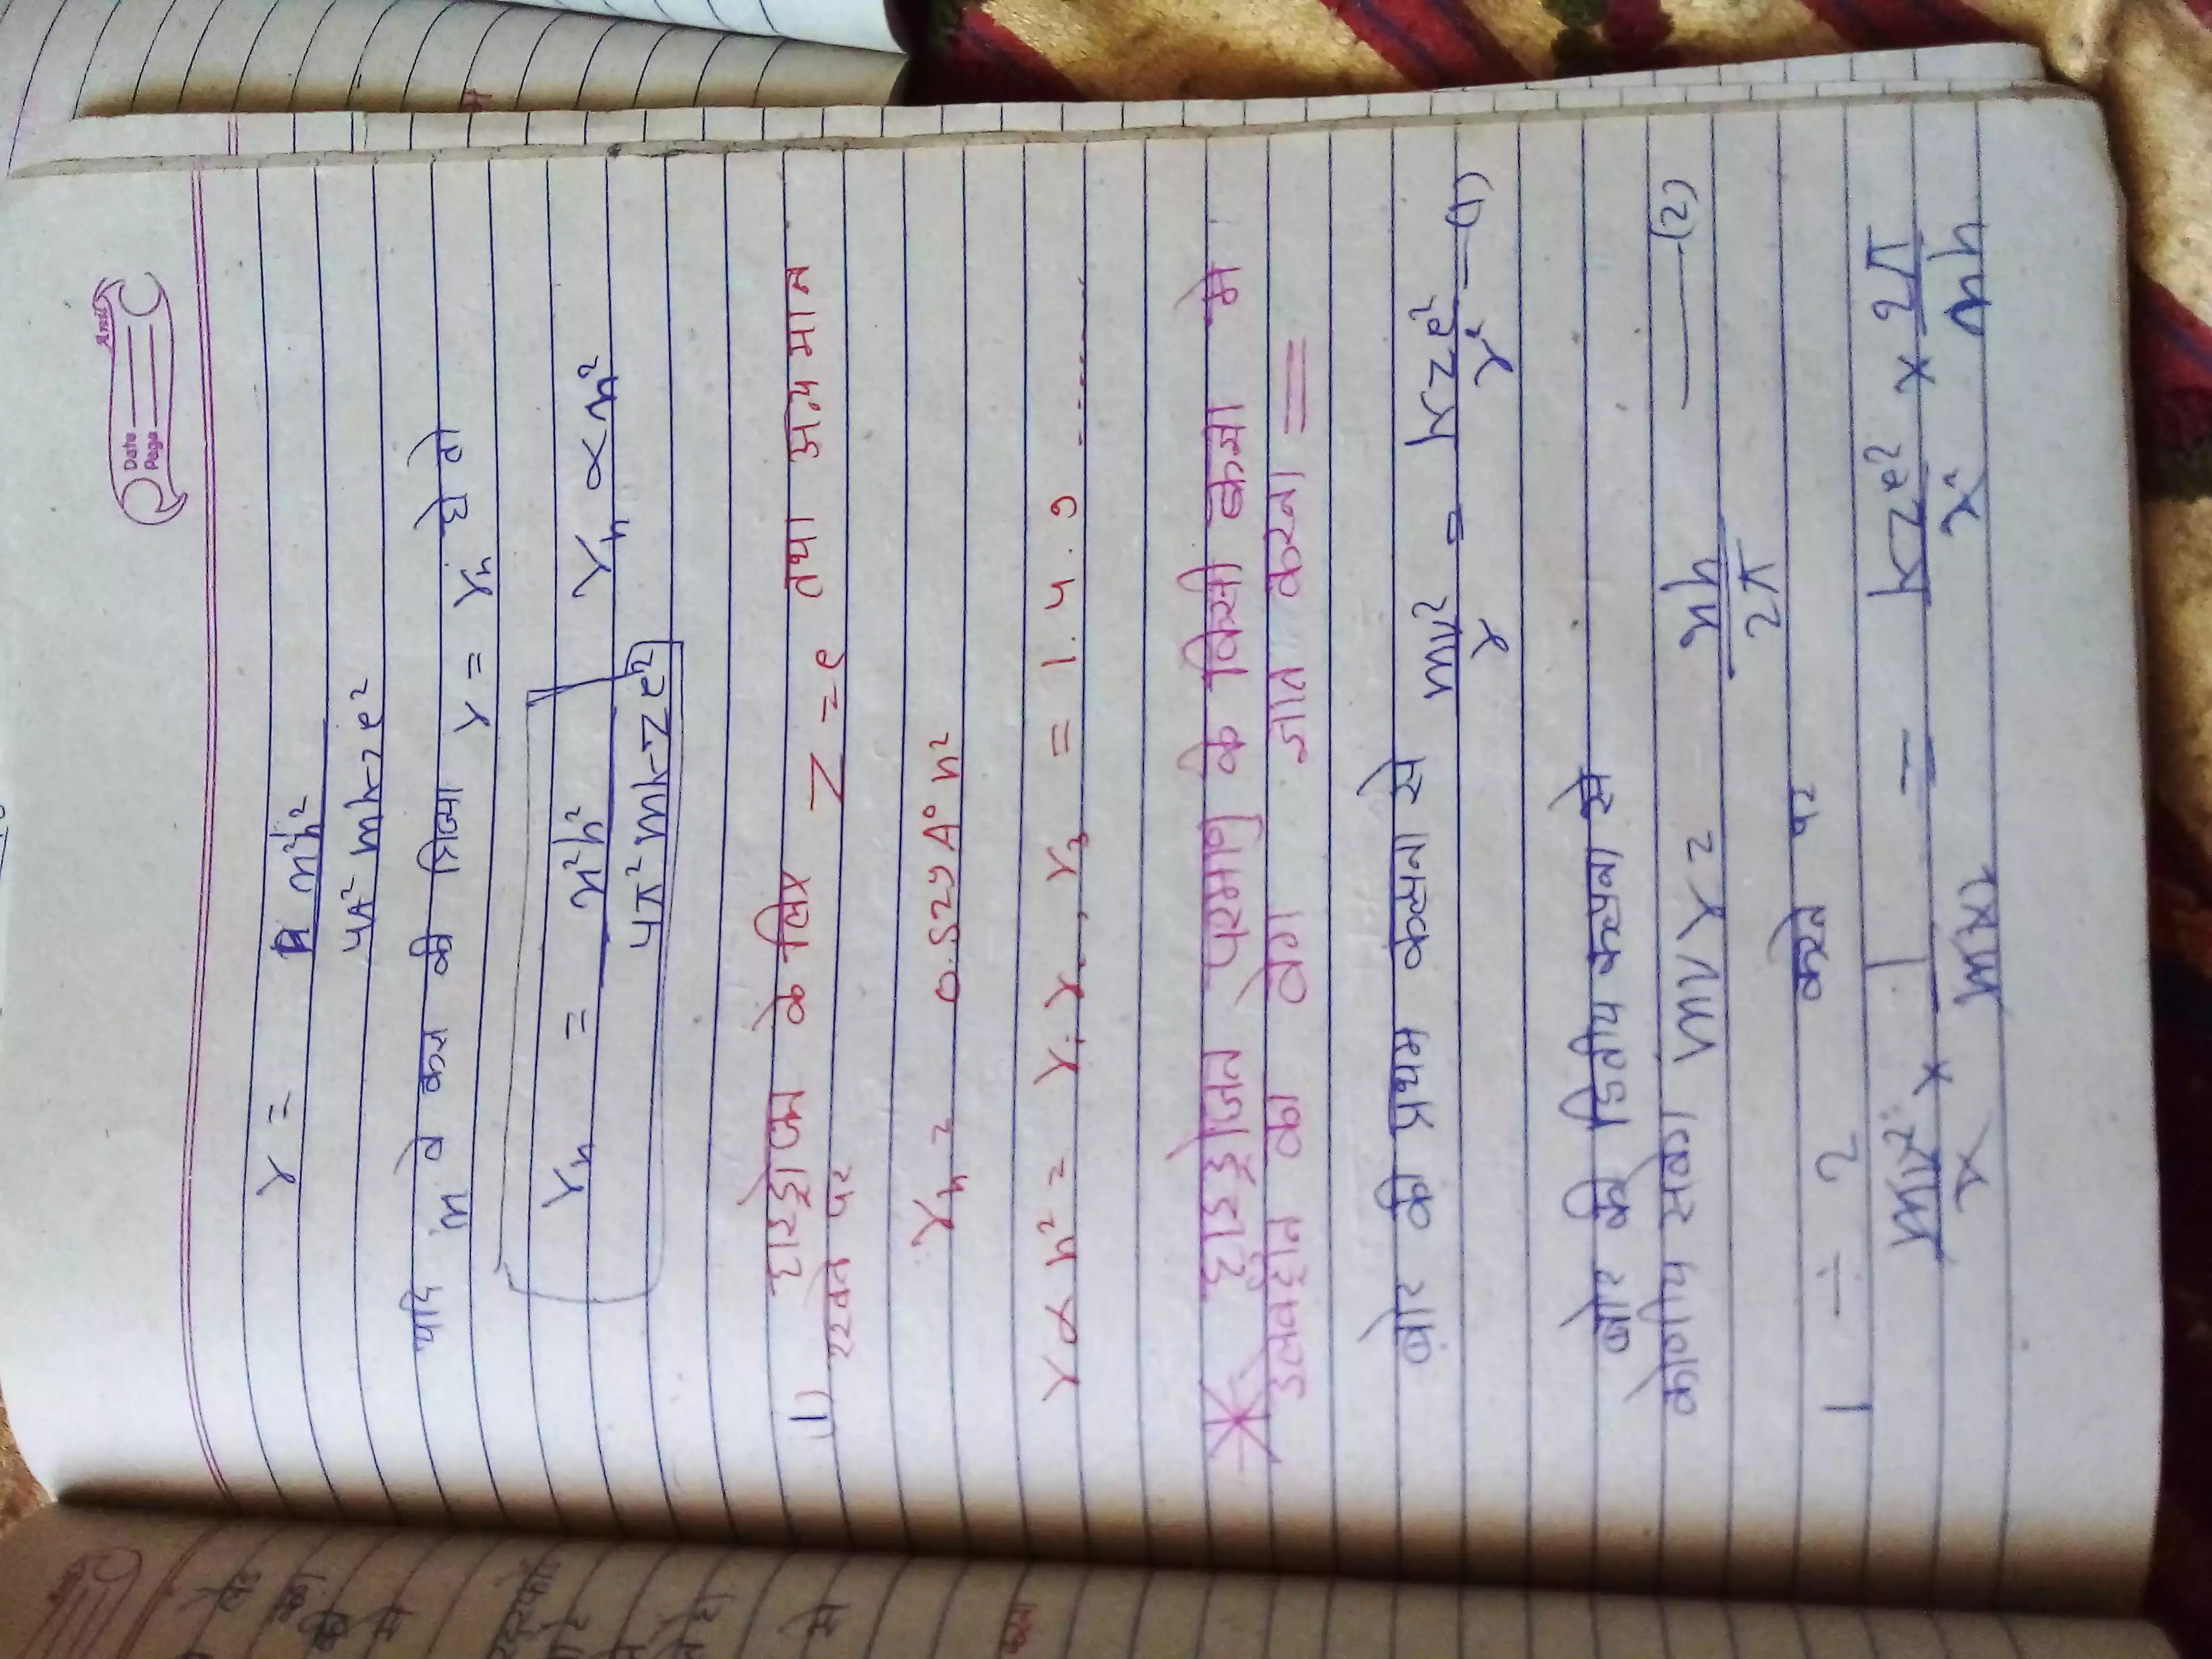 Date
Page
γ = n²h²
4π²mkze²
यदि n वे कक्ष की त्रिज्या γ = γn हो तो
γn = n²h² γn ∝ n²
4π²mkze²
1) हाइड्रोजन के लिए Z = e तथा अन्य मान
रखने पर
γn = 0.529A° n²
γ ∝ n² = γ1 γ2, γ3 = 1.4.9 ......
* हाइड्रोजन परमाणु के किसी कक्षा मे
इलेक्ट्रॉन का वेग ज्ञात करना =
बोर की प्रथम कल्पना से mv²/γ = kze²/γ² — (1)
बोर की द्वितीय कल्पना से
कोणीय संवेग mvγ = nh/2π —— (2)
1 ÷ 2 करने पर
mv²/γ × 1/mvγ = kze²/γ² × 2π/nh